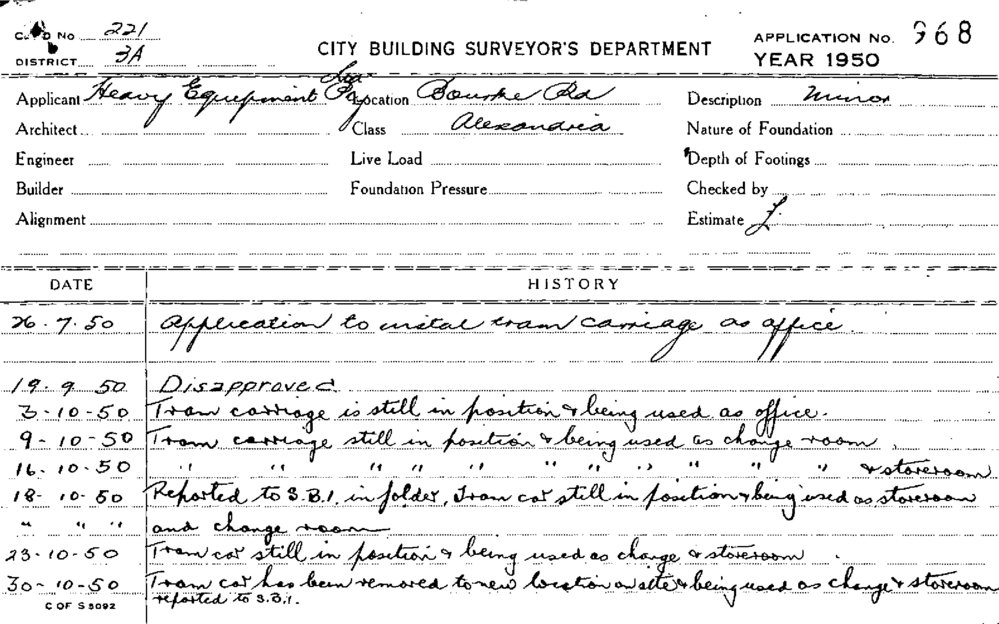 CARD No 221
DISTRICT 3A
CITY BUILDING SURVEYOR'S DEPARTMENT
APPLICATION No. 968
YEAR 1950
Applicant Heavy Equipment Pty Location Bourke Rd Description Minor
Architect Class Alexandria Nature of Foundation
Engineer Live Load Depth of Footings
Builder Foundation Pressure Checked by
Alignment Estimate £
DATE HISTORY
26.7.50 Application to instal tram carriage as office.
19.9.50 Disapproved.
3-10-50 Tram carriage is still in position & being used as office.
9-10-50 Tram carriage still in position & being used as change room,
16-10-50 " " " " " " " " " " " & storeroom
18-10-50 Reported to S.B.I. in folder, Tram car still in position & being used as storeroom
" " " and change room
23-10-50 Tram car still in position & being used as change & storeroom.
30-10-50 Tram car has been removed to new location on site & being used as change & storeroom
reported to S.B.I.
C OF S 5092